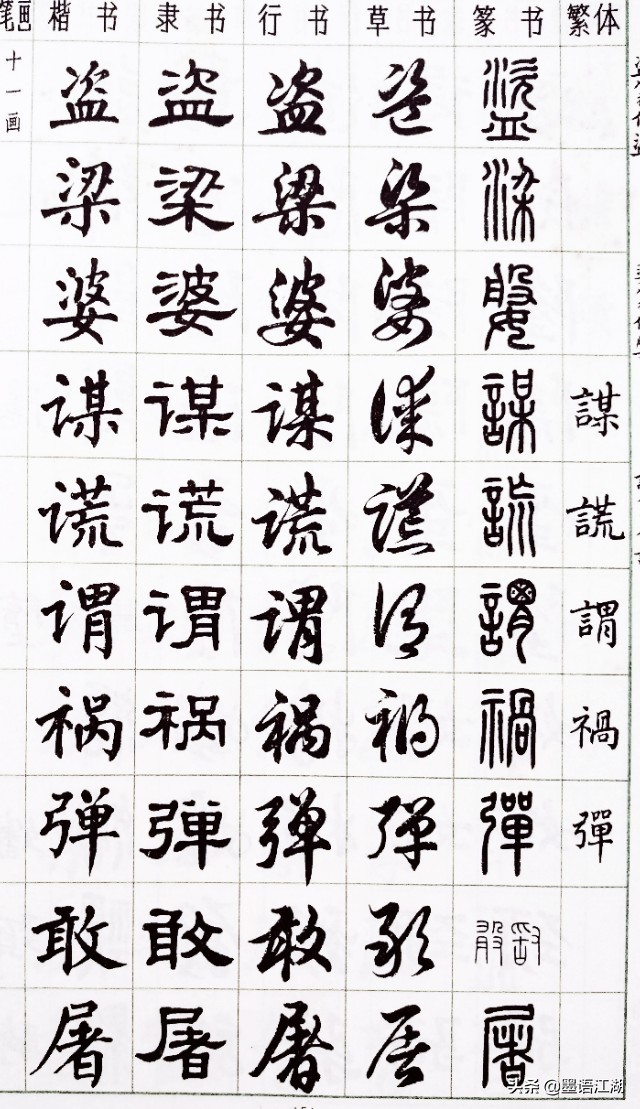 笔画 楷书 隶书 行书 草书 篆书 繁体
十一画 盗 盗 盗 盗 盗
梁 梁 梁 梁 梁
婆 婆 婆 婆 婆
谋 谋 谋 谋 謀 謀
谎 谎 谎 谎 謊 謊
谓 谓 谓 谓 謂 謂
祸 祸 祸 祸 禍 禍
弹 弹 弹 弹 彈 彈
敢 敢 敢 敢 敢
屠 屠 屠 屠 屠
头条 @墨语江湖